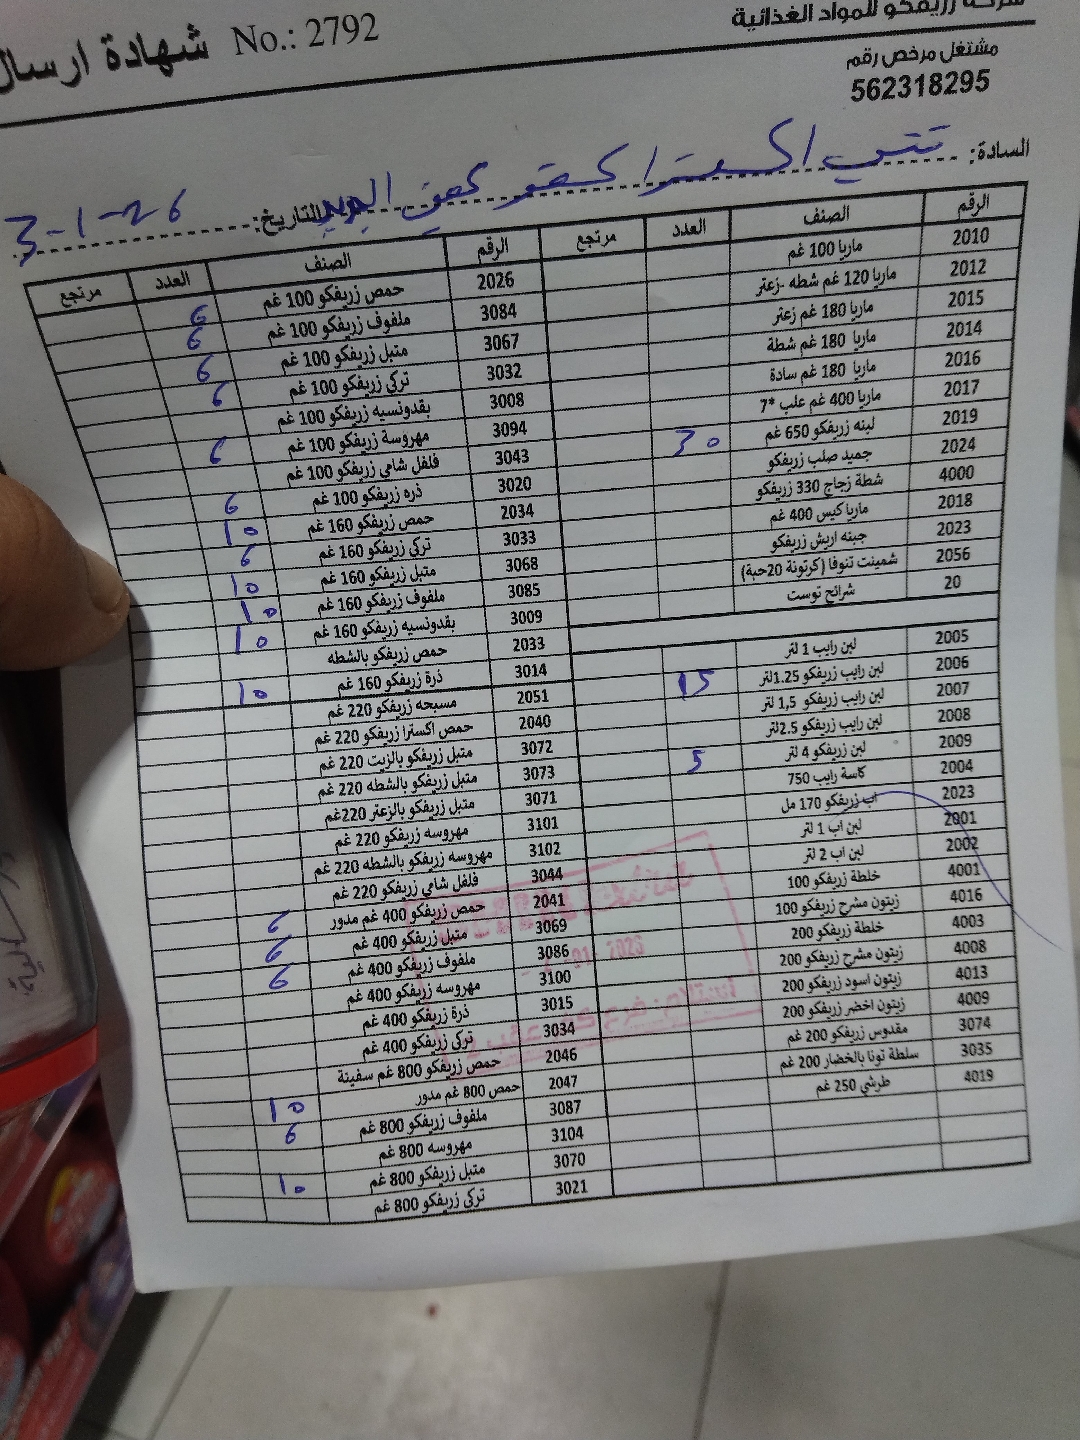 شهادة ارسال No.: 2792
شركة زريفكو للمواد الغذائية
مشتغل مرخص رقم
562318295
السادة: اكسترا كفر
التاريخ: 3-1-26
الرقم الصنف العدد مرتجع
2010 ماريا 100 غم
2012 ماريا 120 غم شطه -زعتر
2015 ماريا 180 غم زعتر
2014 ماريا 180 غم شطة
2016 ماريا 180 غم سادة
2017 ماريا 400 غم علب *7
2019 لبنه زريفكو 650 غم 30
2024 جميد صلب زريفكو
4000 شطة زجاج 330 زريفكو
2018 ماريا كيس 400 غم
2023 جبنه اريش زريفكو
2056 شمينت تنوفا (كرتونة 20حبة)
20 شرائح توست
2005 لبن رايب 1 لتر
2006 لبن رايب زريفكو 1.25لتر 15
2007 لبن رايب زريفكو 1,5 لتر
2008 لبن رايب زريفكو 2.5لتر
2009 لبن زريفكو 4 لتر 5
2004 كاسة رايب 750
2023 اب زريفكو 170 مل
2001 لبن اب 1 لتر
2002 لبن اب 2 لتر
4001 خلطة زريفكو 100
4016 زيتون مشرح زريفكو 100
4003 خلطة زريفكو 200
4008 زيتون مشرح زريفكو 200
4013 زيتون اسود زريفكو 200
4009 زيتون اخضر زريفكو 200
3074 مقدوس زريفكو 200 غم
3035 سلطة تونا بالخضار 200 غم
4019 طرشي 250 غم
الرقم الصنف العدد مرتجع
2026 حمص زريفكو 100 غم 6
3084 ملفوف زريفكو 100 غم 6
3067 متبل زريفكو 100 غم 6
3032 تركي زريفكو 100 غم 6
3008 بقدونسيه زريفكو 100 غم
3094 مهروسة زريفكو 100 غم 6
3043 فلفل شامي زريفكو 100 غم
3020 ذره زريفكو 100 غم 6
2034 حمص زريفكو 160 غم 10
3033 تركي زريفكو 160 غم 6
3068 متبل زريفكو 160 غم 10
3085 ملفوف زريفكو 160 غم 10
3009 بقدونسيه زريفكو 160 غم 10
2033 حمص زريفكو بالشطه
3014 ذرة زريفكو 160 غم 10
2051 مسبحه زريفكو 220 غم
2040 حمص اكسترا زريفكو 220 غم
3072 متبل زريفكو بالزيت 220 غم
3073 متبل زريفكو بالشطه 220 غم
3071 متبل زريفكو بالزعتر 220غم
3101 مهروسه زريفكو 220 غم
3102 مهروسه زريفكو بالشطه 220 غم
3044 فلفل شامي زريفكو 220 غم
2041 حمص زريفكو 400 غم مدور 6
3069 متبل زريفكو 400 غم 6
3086 ملفوف زريفكو 400 غم 6
3100 مهروسه زريفكو 400 غم
3015 ذرة زريفكو 400 غم
3034 تركي زريفكو 400 غم
2046 حمص زريفكو 800 غم سفينة
2047 حمص 800 غم مدور 10
3087 ملفوف زريفكو 800 غم 6
3104 مهروسه 800 غم
3070 متبل زريفكو 800 غم 10
3021 تركي زريفكو 800 غم